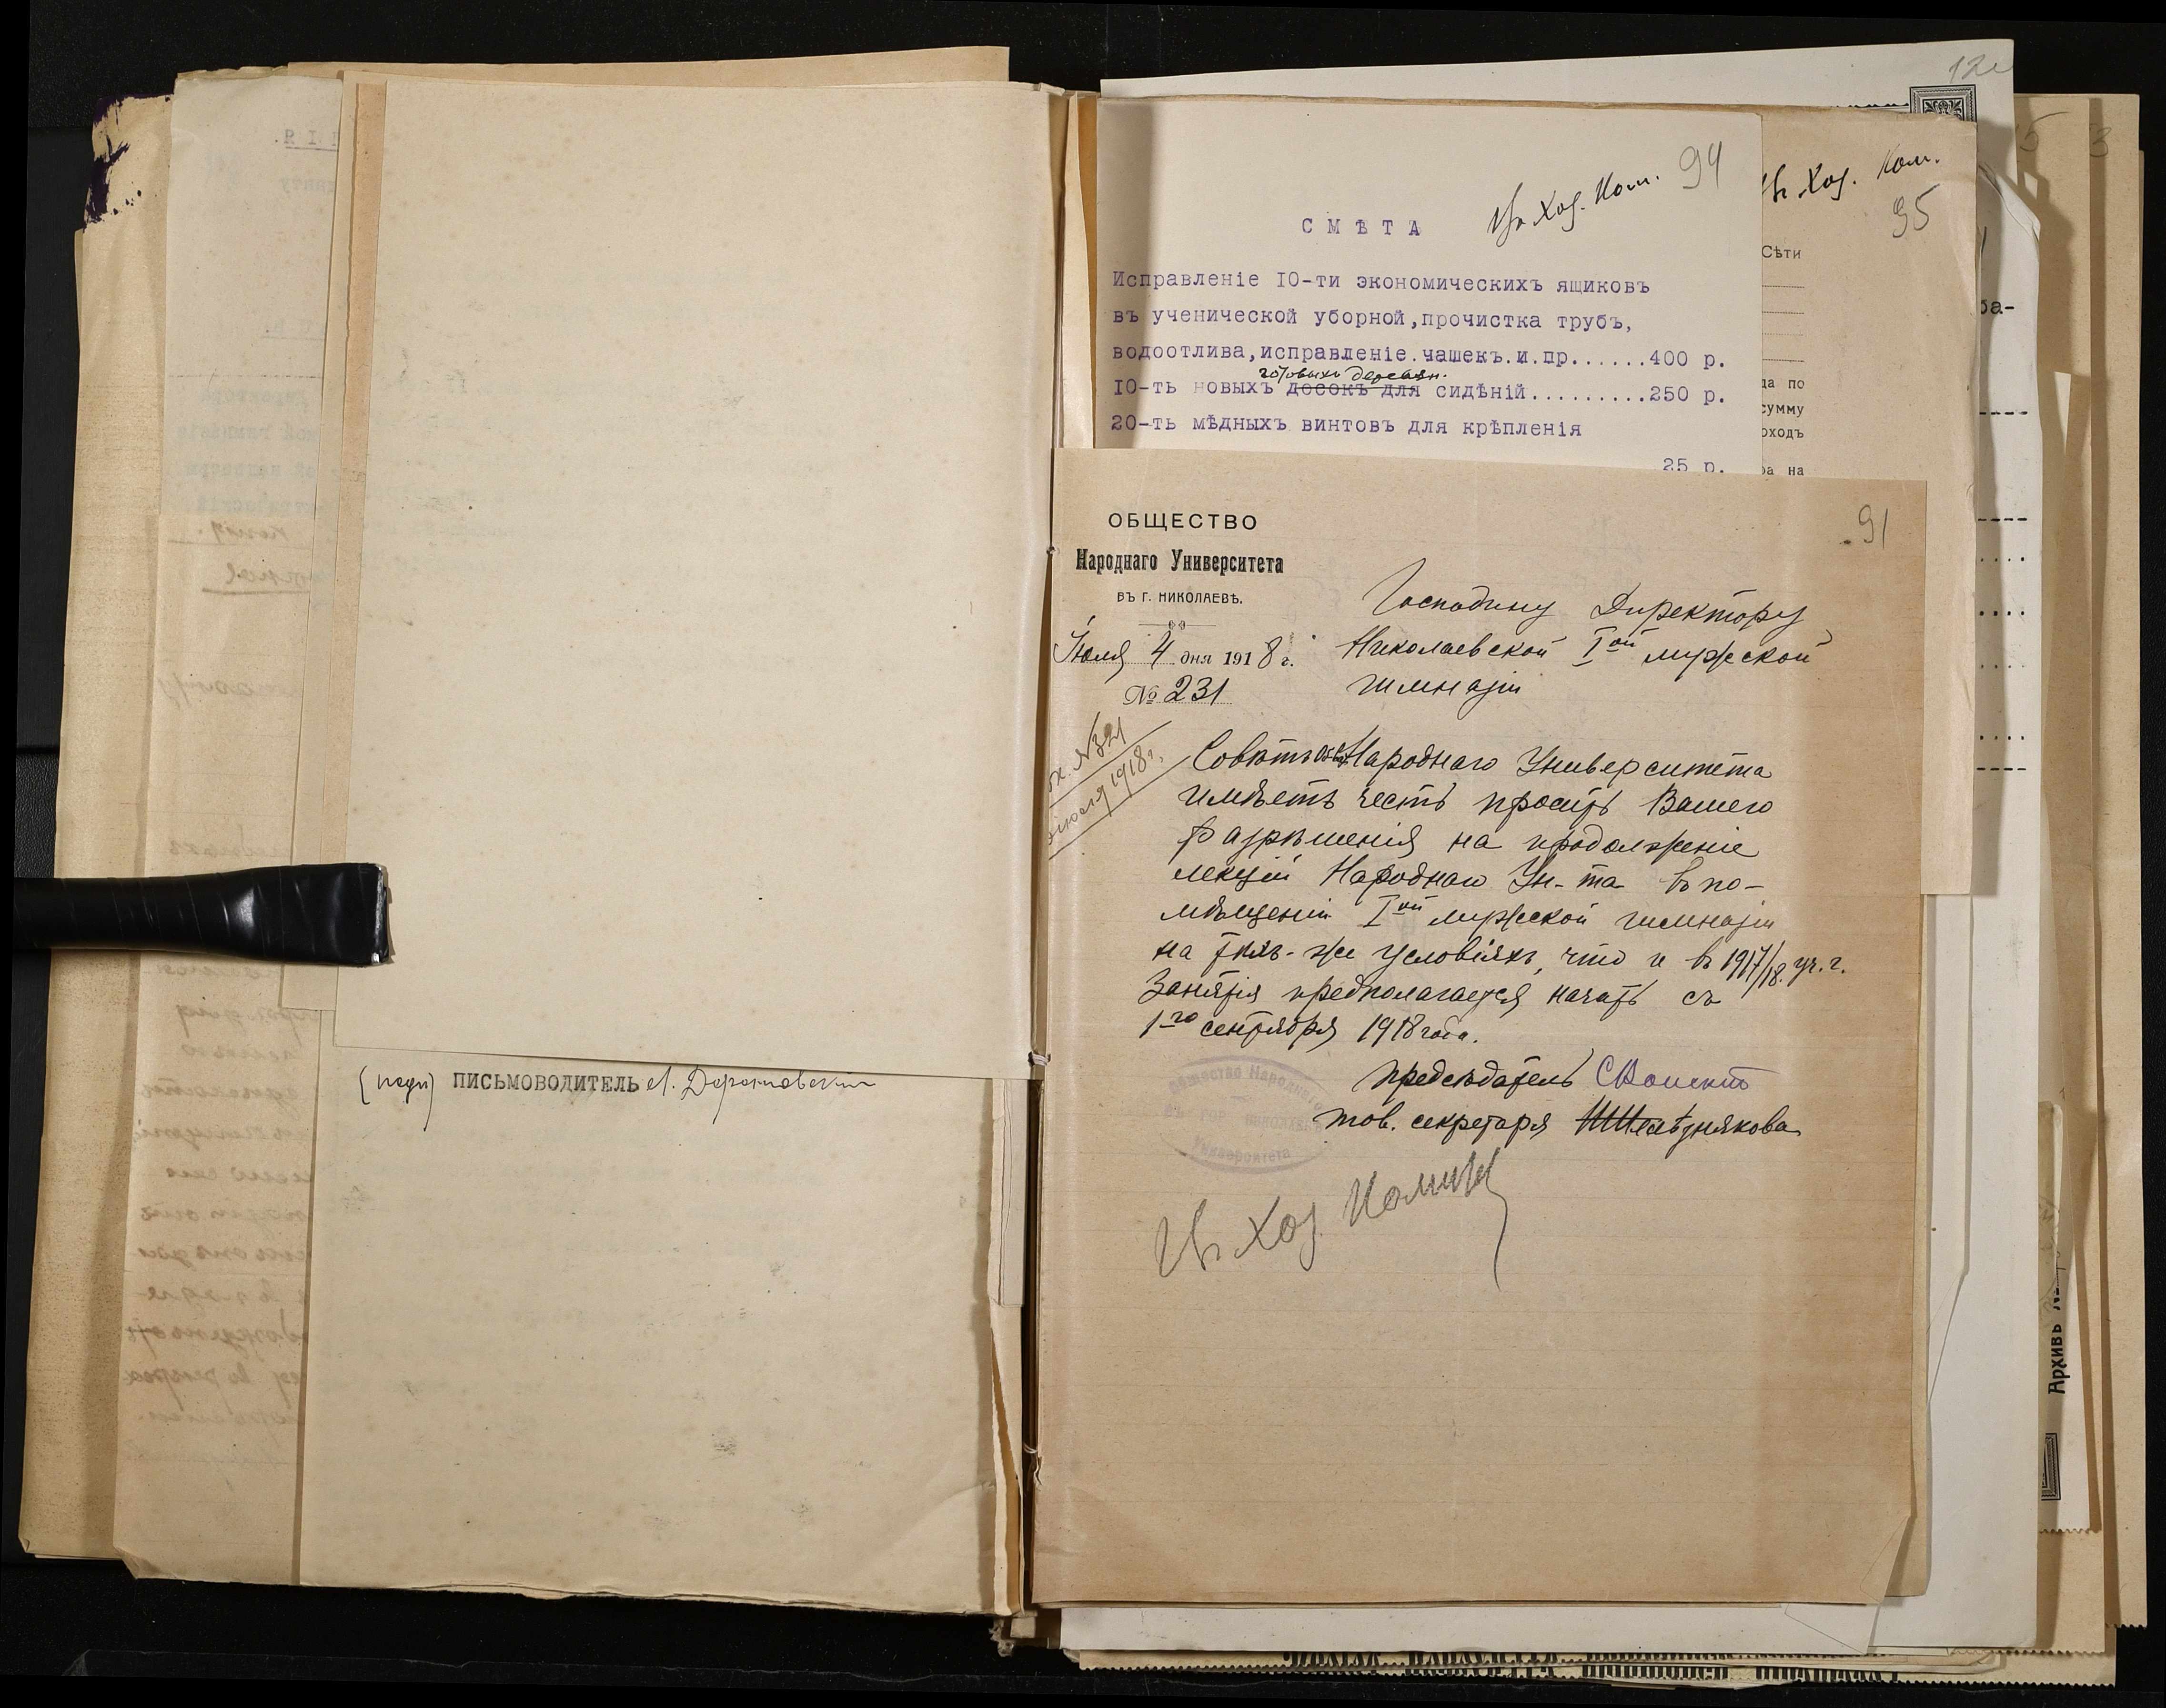 (подп) ПИСЬМОВОДИТЕЛЬ
120
Въ Хоз. Ком. 94
СМѢТА
Исправленіе IO-ти экономическихъ ящиковъ
въ ученической уборной,прочистка трубъ,
водоотлива,исправленіе.чашекъ.и.пр......400 р.
готовыхъ деревян.
IO-ть новыхъ досокъ для сидѣній.........250 р.
20-ть мѣдныхъ винтовъ для крѣпленія
25 р.
Въ Хоз. Ком.
95
Сѣти
да по
сумму
оходъ
ра на
ба-
91
ОБЩЕСТВО
Народнаго Университета
ВЪ Г. НИКОЛАЕВѢ.
Іюля 4 дня 1918 г.
№ 231
Господину Директору
Николаевской I ой мужской
гимназіи
іюля 1918 г.
Совѣтъ Общ. Народнаго Университета
имѣетъ честь просить Вашего
разрѣшенія на продолженіе
лекцій Народнаго Ун-та въ по-
мѣщеніи I ой мужской гимназіи
на тѣхъ-же условіяхъ, что и въ 1917/18. уч. г.
Занятія предполагается начать съ
1 го сентября 1918 года.
Предсѣдатель
тов. секретаря
Общество Народнаго
Университета
Въ Хоз. Комит
Архивъ №